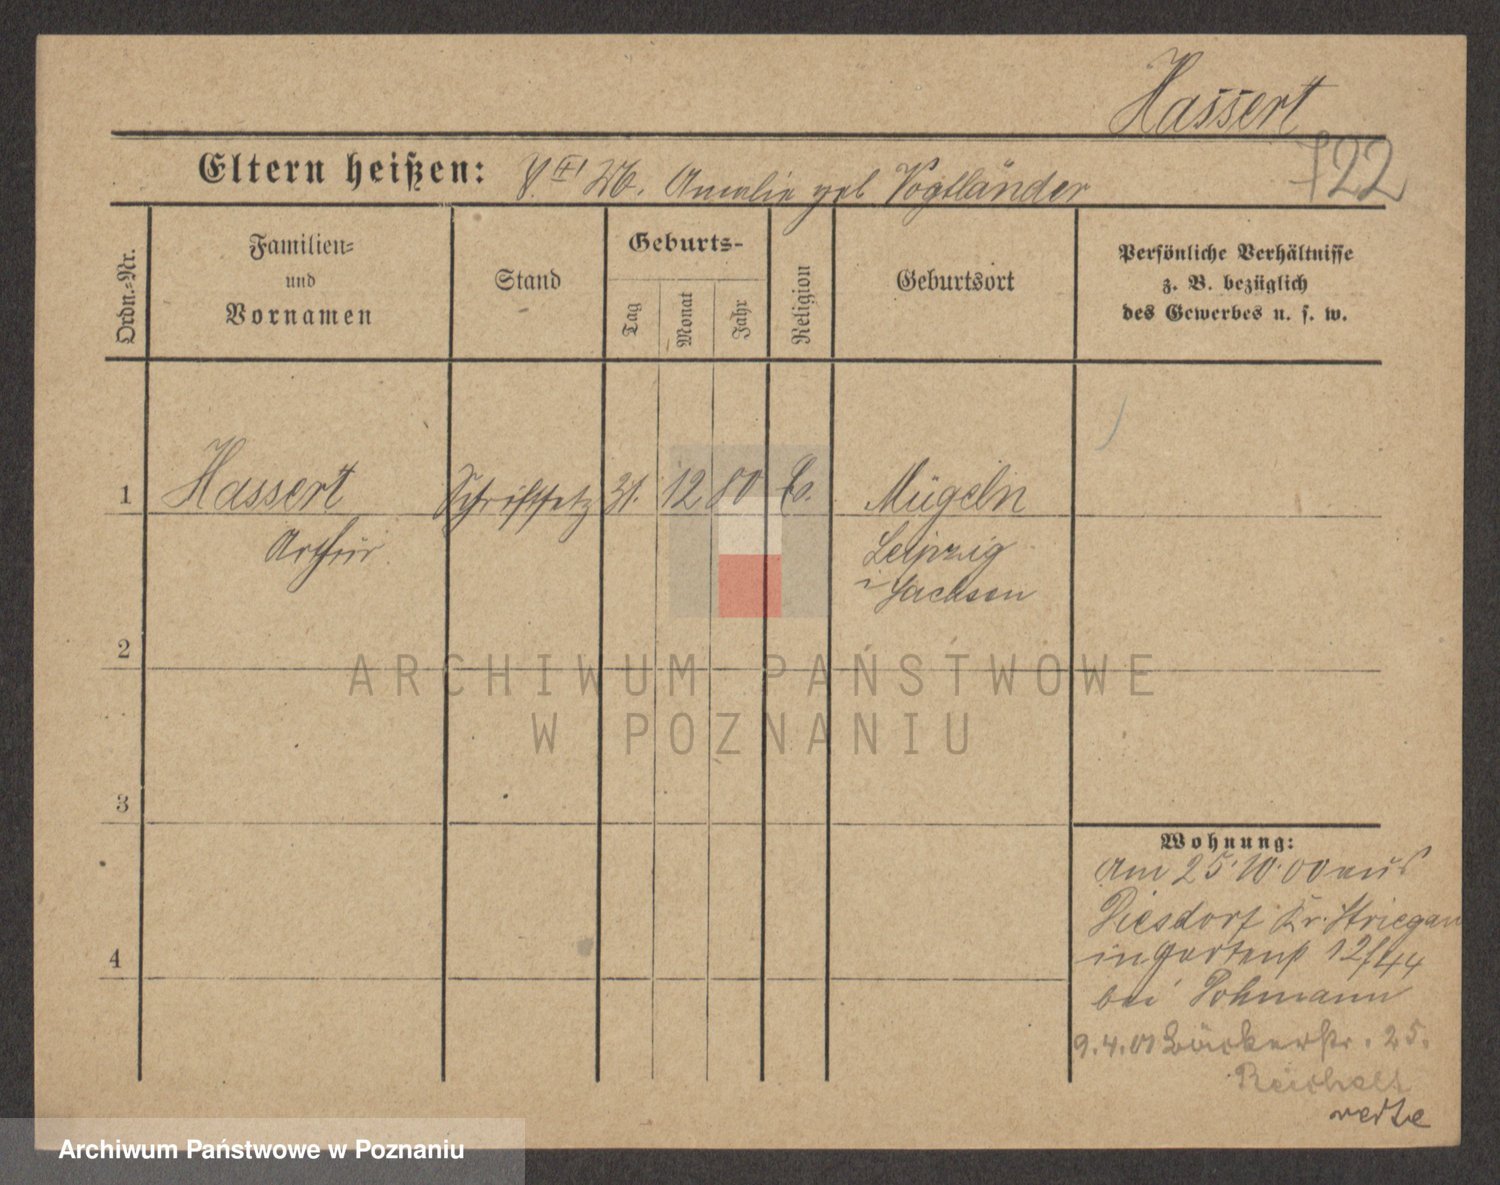 Hassert
722
Eltern heißen: V. Wb. Amalie geb. Vogtländer
Ordn.-Nr.
Familien-
und
Vornamen
Stand
Geburts-
Tag
Monat
Jahr
Religion
Geburtsort
Persönliche Verhältnisse
z. B. bezüglich
des Gewerbes u. s. w.
1 Hassert Schriftsetz 31. 12 80 Ev. Mügeln
Arthur
Leipzig
i Sachsen
2
3
4
Wohnung:
Am 25.10.00 aus
Diesdorf Kr. Striegau
in Gartenst 12/44
bei Pohmann
9.4.01 Bäckerstr. 25.
Reichelt
verte
ARCHIWUM PAŃSTWOWE
W POZNANIU
Archiwum Państwowe w Poznaniu